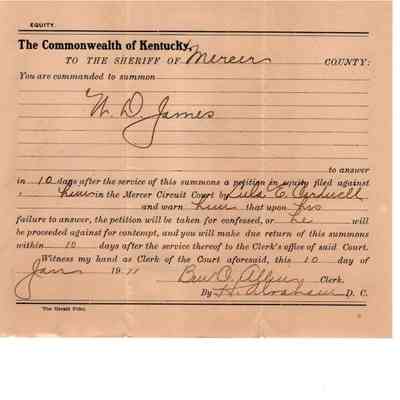 EQUITY.
The Commonwealth of Kentucky,
TO THE SHERIFF OF Mercer COUNTY:
You are commanded to summon
W. D. James
to answer
in 10 days after the service of this summons a petition in equity filed against
him in the Mercer Circuit Court by Lula E. Cardwell
and warn him that upon his
failure to answer, the petition will be taken for confessed, or he will
be proceeded against for contempt, and you will make due return of this summons
within 10 days after the service thereof to the Clerk's office of said Court.
Witness my hand as Clerk of the Court aforesaid, this 10 day of
Jan 19 11 Ben Allen Clerk.
By D. C.
The Herald Print.